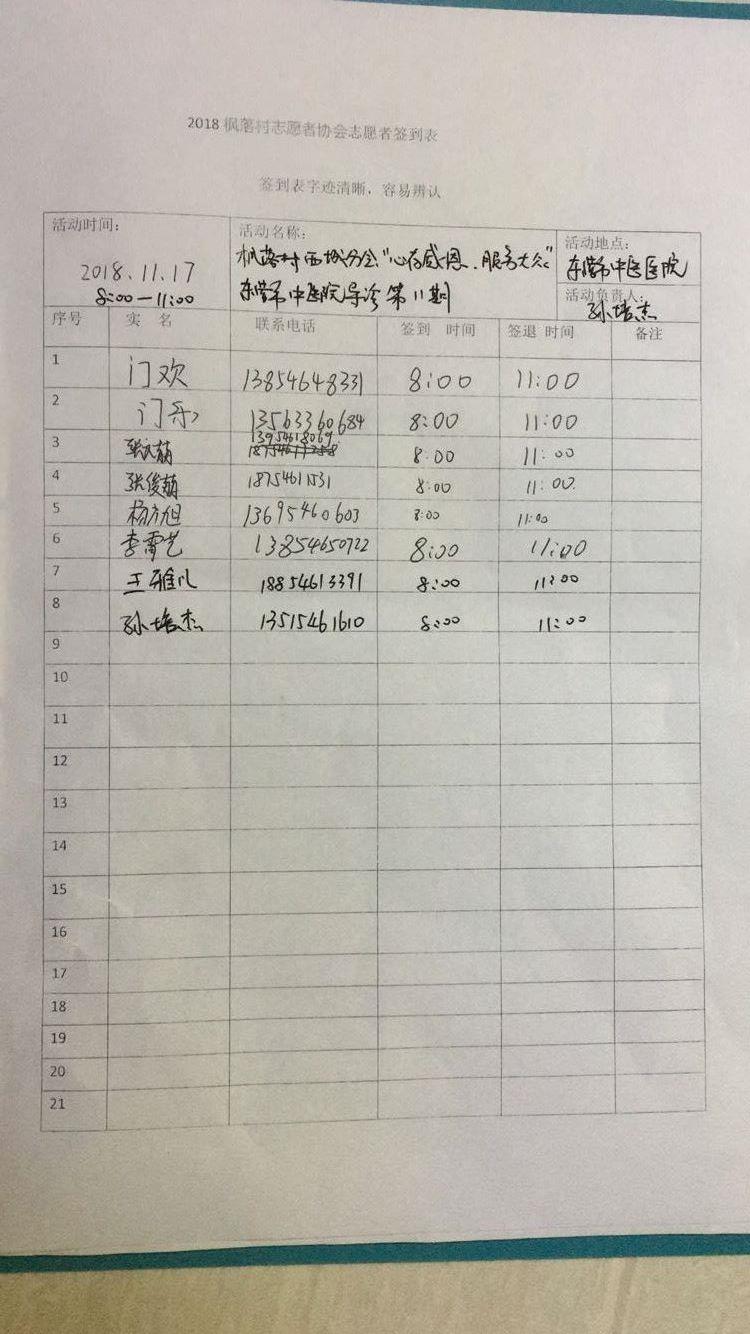 2018 枫落村志愿者协会志愿者签到表
签到表字迹清晰，容易辨认
活动时间： 活动名称： 活动地点：
2018.11.17 枫落村西城分会"心存感恩、服务大众" 东营市中医医院
8:00—11:00 东营市中医院导诊第11期 活动负责人：孙培杰
序号 实 名 联系电话 签到 时间 签退 时间 备注
1 门欢 13854648331 8:00 11:00
2 门乐 13563360684 8:00 11:00
3 13954618069 8:00 11:00
4 张俊萌 18754611531 8:00 11:00
5 杨方旭 13695460603 8:00 11:00
6 李霄艺 13854650722 8:00 11:00
7 王雅儿 18854613391 8:00 11:00
8 孙培杰 13515461610 8:00 11:00
9
10
11
12
13
14
15
16
17
18
19
20
21